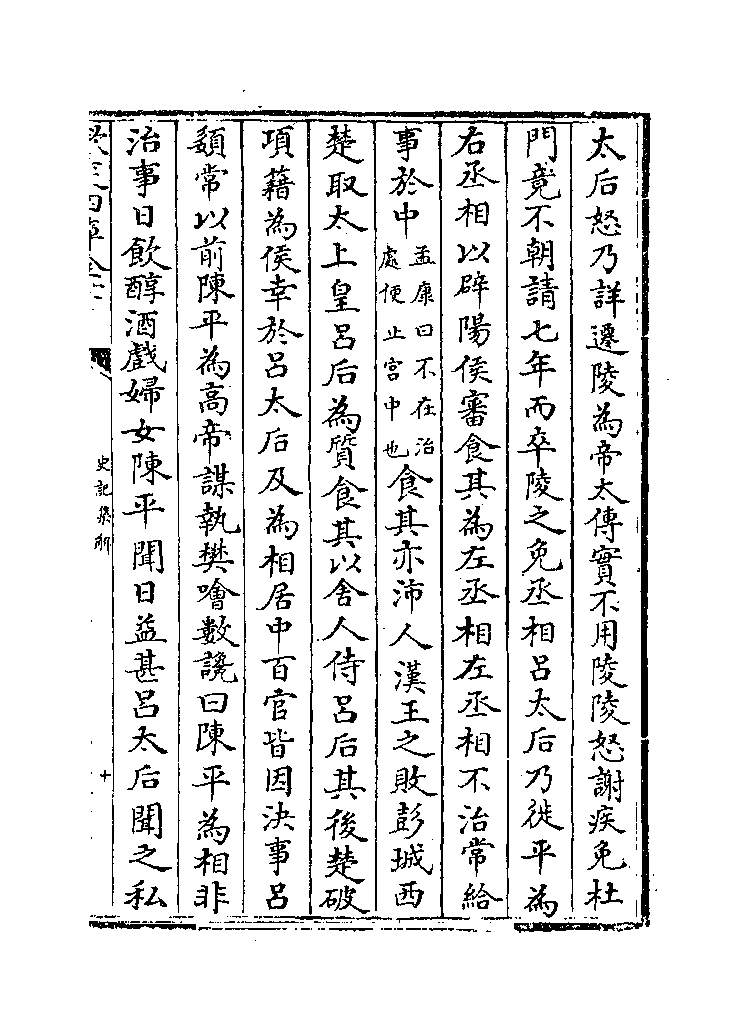 太后怒乃詳遷陵為帝太傅實不用陵陵怒謝疾免杜
門竟不朝請七年而卒陵之免丞相呂太后乃徙平為
右丞相以辟陽侯審食其為左丞相左丞相不治常給
事於中孟康曰不在治處使止宫中也食其亦沛人漢王之敗彭城西
楚取太上皇呂后為質食其以舍人侍呂后其後楚破
項籍為侯幸於呂太后及為相居中百官皆因決事呂
嬃常以前陳平為高帝謀執樊噲數讒曰陳平為相非
治事日飲醇酒戲婦女陳平聞日益甚呂太后聞之私
史記集解
十